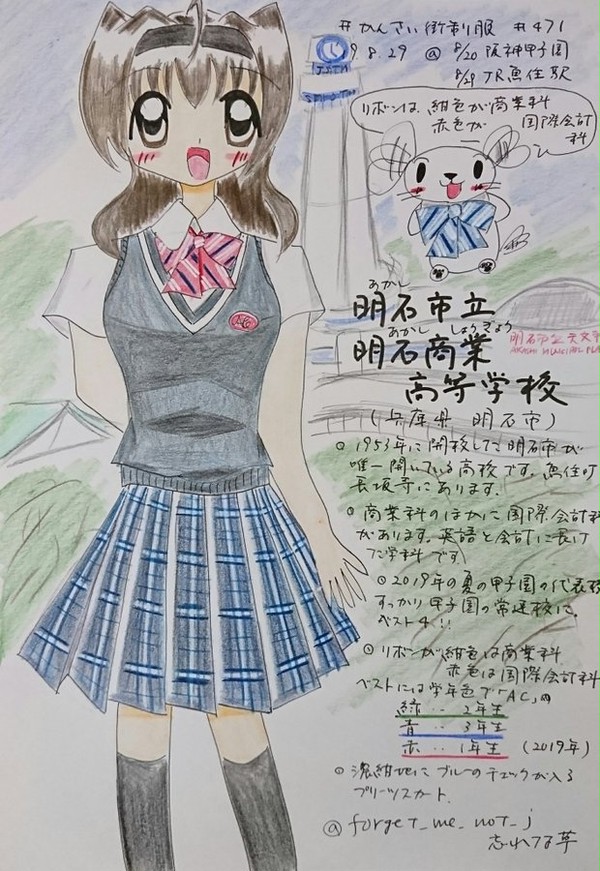 #かんさい街制服 #471
9.8.29 @ 8/20 阪神甲子園
8/29 JR魚住駅
J.S.T.M
リボンは、紺色が商業科
赤色が 国際会計科
AC
あかし
明石市立
あかし しょうぎょう
明石商業
高等学校
(兵庫県 明石市)
明石市立天文
AKASHI MUNICIPAL PLA
○1953年に開校した明石市が
唯一開いている高校です。魚住町
長坂寺にあります。
○商業科のほかに国際会計科
があります。英語と会計に長け
た学科です。
○2019年の夏の甲子園の代表校
すっかり甲子園の常連校に。
ベスト4!!
○リボンが紺色は商業科
赤色は国際会計科
ベストには学年色で「AC」の
緑‥2年生
青‥3年生
赤‥1年生 (2019年)
○濃紺地にブルーのチェックが入る
プリーツスカート.
@forget_me_not_j
忘れな草